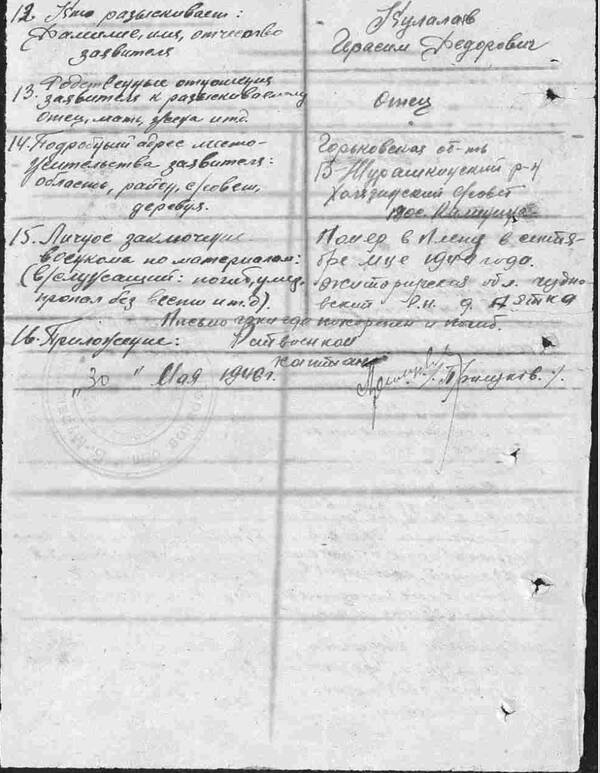 12. Кто разыскивает:
Фамилие, имя, отчество
заявителя
Кулалаев
Герасим Федорович
13. Родственные отношения
заявителя к разыскиваемому
отец, мать, жена и т.д.
Отец
14. Подробный адрес место-
жительства заявителя:
область, район, с/совет,
деревня.
Горьковская об-ть
Б Мурашкинский р-н
Холязинский с/совет
15. Личное заключение
военкома по материалам:
(в/служащий: погиб, умер,
пропал без вести и т.д).
Помер в плену в сентя-
бре м-це 194 года.
Житомирская обл. Чудно-
вский р.н. д. Пятка
Письмо и погиб.
16. Приложение: Райвоенком
капитан
"30" Мая 1946г.